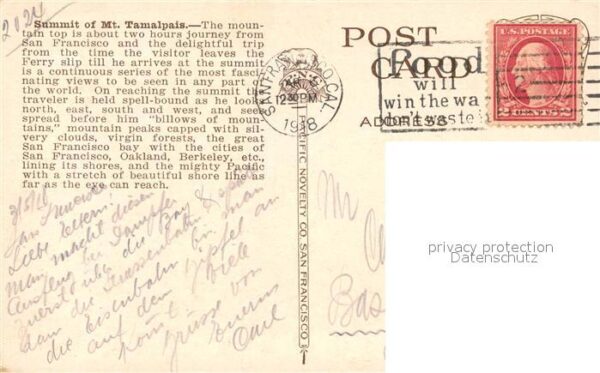 2024
Summit of Mt. Tamalpais.—The moun-
tain top is about two hours journey from
San Francisco and the delightful trip
from the time the visitor leaves the
Ferry slip till he arrives at the summit
is a continuous series of the most fasci-
nating views to be seen in any part of
the world. On reaching the summit the
traveler is held spell-bound as he look
north, east, south and west, and sees
spread before him "billows of moun-
tains," mountain peaks capped with sil-
very clouds, virgin forests, the great
San Francisco bay with the cities of
San Francisco, Oakland, Berkeley, etc.,
lining its shores, and the mighty Pacific
with a stretch of beautiful shore line as
far as the eye can reach.
Liebe Eltern!
Man macht diesen
Ausflug bei Dampfer
zuerst über die Bay &
dan die Strassenbahn
die Eisenbahn bis man
auf dem Gipfel an
komt. Viele
Grüsse von
Euerm
Carl
PACIFIC NOVELTY CO. SAN FRANCISCO
SAN FRANCISCO, CAL.
12 30 PM
1918
POST
CARD
ADDRESS
Food
will
win the wa
don't waste it
U.S. POSTAGE
2 CENTS 2
Mr
Bas
privacy protection
Datenschutz